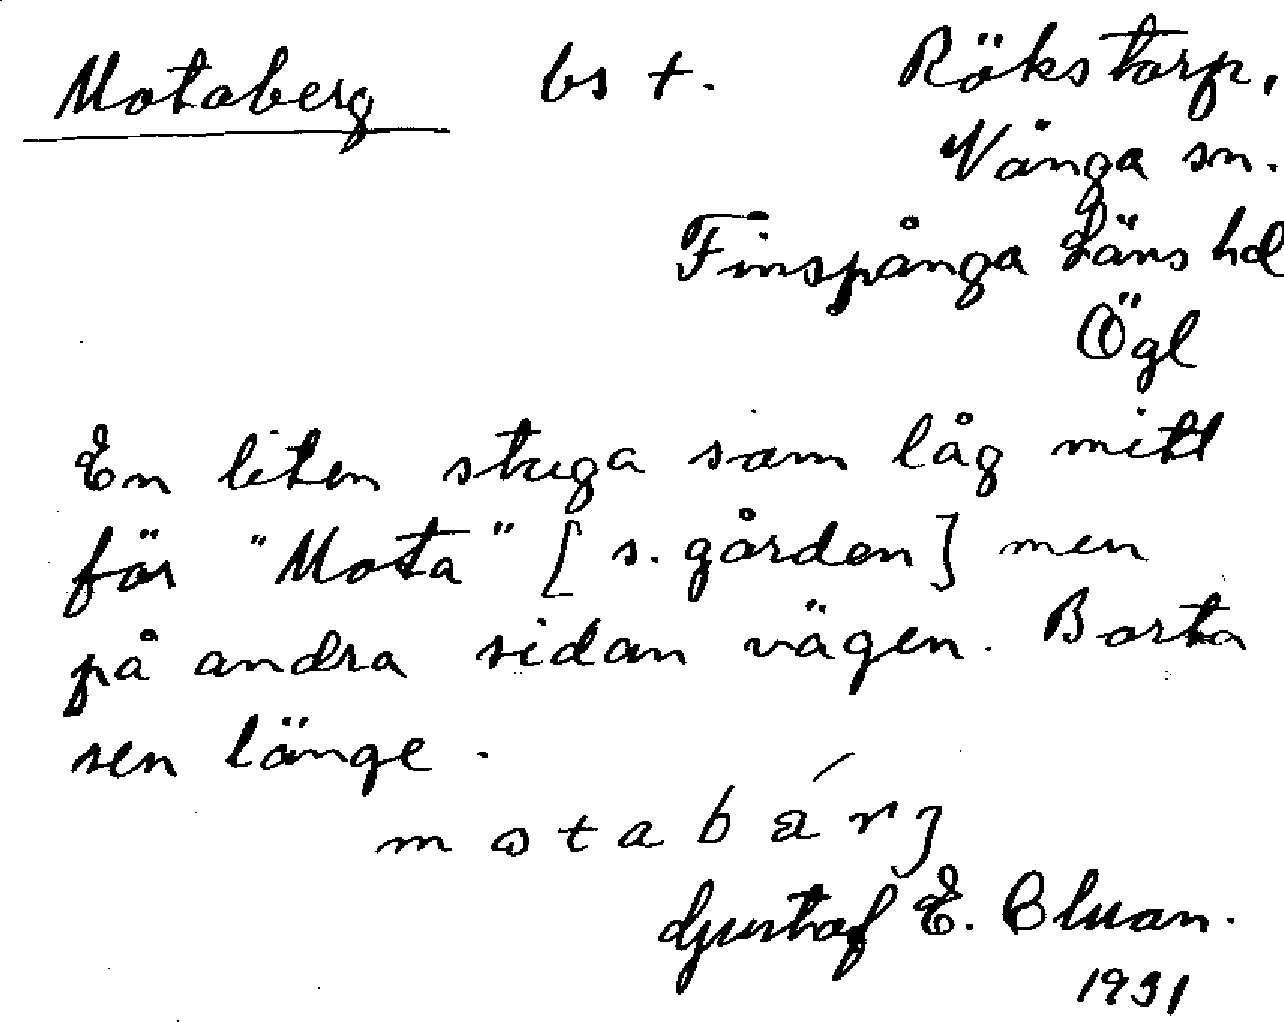 Motaberg bs t. Rökstorp,
Vånga sn.
Finspånga Läns hd
Ögl
En liten stuga som låg mitt
för "Mota" [s. gården] men
på andra sidan vägen. Borta
sen länge.
Gustaf E. Cluan.
1931